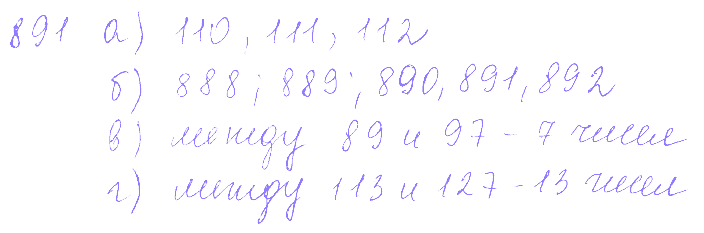 891 а) 110, 111, 112
б) 888; 889; 890, 891, 892
в) между 89 и 97 - 7 чисел
г) между 113 и 127 - 13 чисел